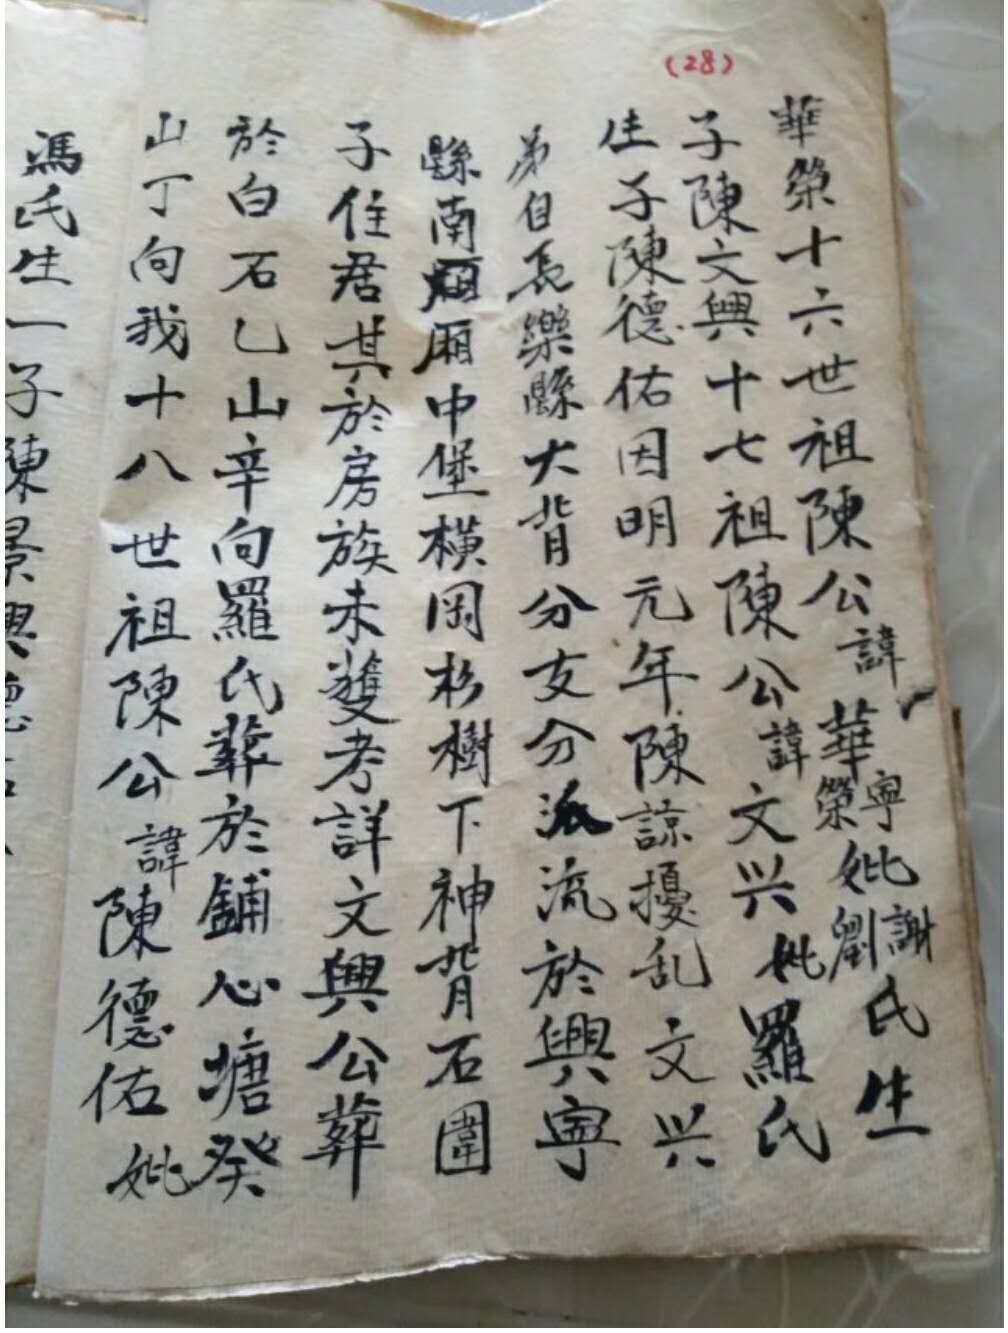 (28)
華榮十六世祖陳公諱華寧榮妣謝劉氏生
子陳文興十七祖陳公諱文兴妣羅氏
生子陳德佑因明元年陳諒擾乱文兴
弟自長樂縣大背分支分派流於興寧
縣南廂中堡橫岡杉樹下神背石圍
子住君其於房族未獲考詳文興公葬
於白石乙山辛向羅氏葬於鋪心塘癸
山丁向我十八世祖陳公諱陳德佑妣
馮氏生一子陳景興德